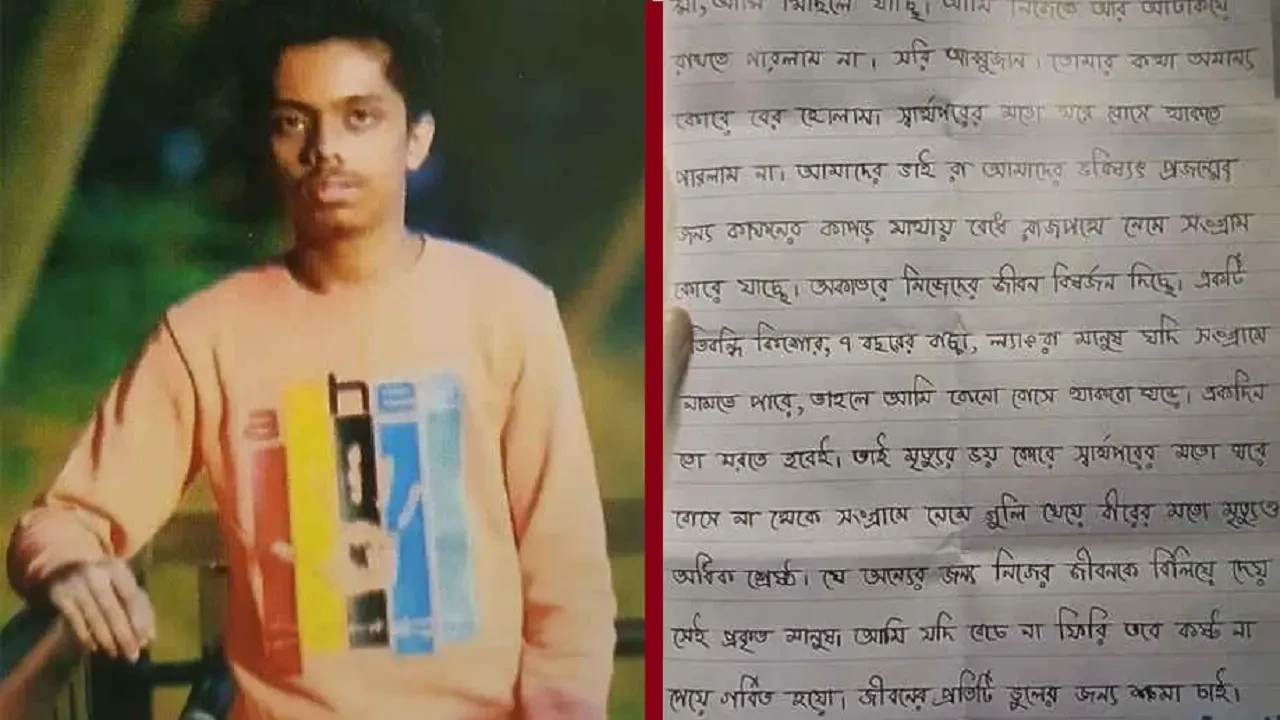 মা, আমি মিছিলে যাচ্ছি। আমি নিজেকে আর আটকিয়ে
রাখতে পারলাম না। সরি আব্বুজান। তোমার কথা অমান্য
কোরে বের হোলাম। স্বার্থপরের মতো ঘরে বোসে থাকতে
পারলাম না। আমাদের ভাই রা আমাদের ভবিষ্যৎ প্রজন্মের
জন্য কাফনের কাপড় মাথায় বেধে রাজপথে নেমে সংগ্রাম
কোরে যাচ্ছে। অকাতরে নিজেদের জীবন বিষর্জন দিচ্ছে। একটি
তিবন্ধি কিশোর, ৭ বছরের বাচ্চা, ল্যাংরা মানুষ যদি সংগ্রামে
নামতে পারে, তাহলে আমি কেনো বোসে থাকবো ঘরে। একদিন
তো মরতে হবেই। তাই মৃত্যুর ভয় কোরে স্বার্থপরের মতো ঘরে
বোসে না থেকে সংগ্রামে নেমে গুলি খেয়ে বীরের মতো মৃত্যুও
অধিক শ্রেষ্ঠ। যে অন্যের জন্য নিজের জীবনকে বিলিয়ে দেয়
সেই প্রকৃত মানুষ। আমি যদি বেচে না ফিরি তবে কষ্ট না
পেয়ে গর্বিত হয়ো। জীবনের প্রতিটি ভুলের জন্য ক্ষমা চাই।